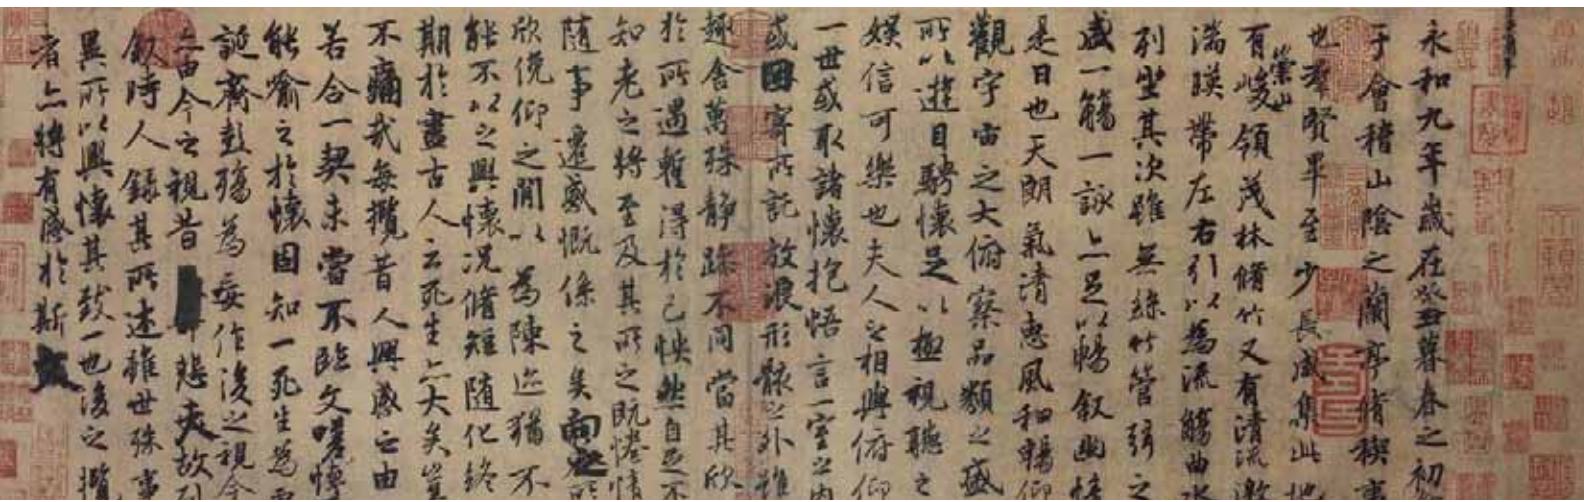 永和九年歲在癸丑暮春之初
于會稽山陰之蘭亭脩稧事
也羣賢畢至少長咸集此地
有崇山峻領茂林脩竹又有清流激
湍暎帶左右引以為流觴曲水
列坐其次雖無絲竹管弦之
盛一觴一詠亦足以暢敘幽情
是日也天朗氣清惠風和暢仰
觀宇宙之大俯察品類之盛
所以遊目騁懷足以極視聽之
娛信可樂也夫人之相與俯仰
一世或取諸懷抱悟言一室之內
或因寄所託放浪形骸之外雖
趣舍萬殊靜躁不同當其欣
於所遇暫得於己怏然自足不
知老之將至及其所之既惓情
隨事遷感慨係之矣向之所
欣俛仰之閒以為陳迹猶不
能不以之興懷況脩短隨化終
期於盡古人云死生亦大矣豈
不痛哉每攬昔人興感之由
若合一契未嘗不臨文嗟悼
能喻之於懷固知一死生為虛
誕齊彭殤為妄作後之視今
亦由今之視昔悲夫故列
敘時人錄其所述雖世殊事
異所以興懷其致一也後之攬
者亦將有感於斯文